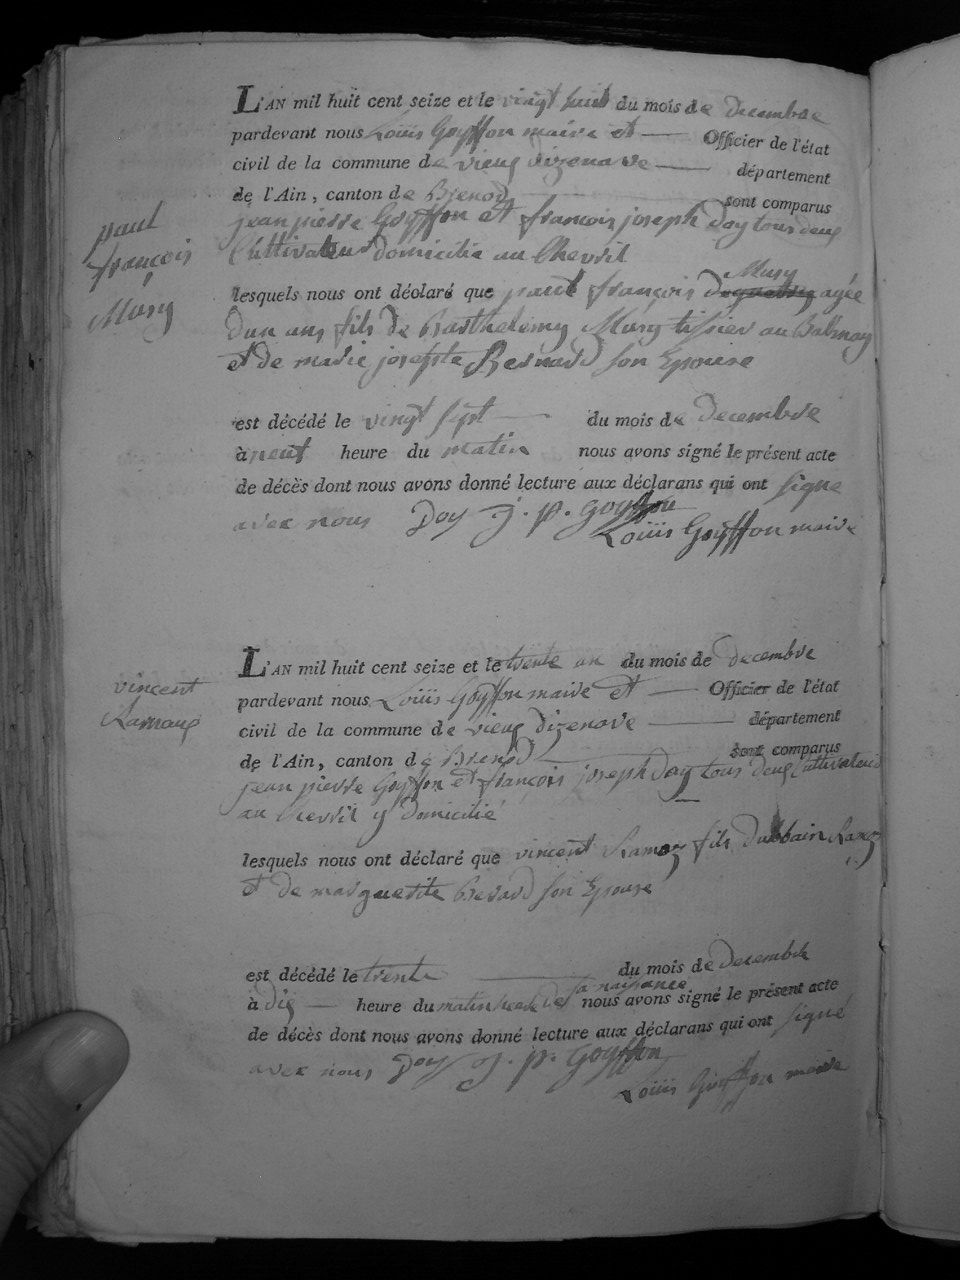 L'AN mil huit cent seize et le vingt huit du mois de decembre
pardevant nous Loüis Goyffon maire et Officier de l'état
civil de la commune de vieux dizenave département
de l'Ain, canton de Brenod sont comparus
jean pierre Goyffon et françois joseph Doy tous deux
Cultivateur domicilié au Chevril
paul
françois
Musy
Musy
lesquels nous ont déclaré que paul françois agée
Dun ans fils de Barthelemy Musy tissier au Balmay
et de marie josepte Bernard son Epouse
est décédé le vingt sept du mois de decembre
à neuf heure du matin nous avons signé le présent acte
de décès dont nous avons donné lecture aux déclarans qui ont signe
avec nous Doy j. p. goyffon
Loüis Goyffon maire
L'AN mil huit cent seize et le trente un du mois de decembre
vincent
Ramoux
pardevant nous Loüis Goyffon maire et Officier de l'état
civil de la commune de vieux dizenove département
de l'Ain, canton de Brenod sont comparus
jean pierre Goyffon et françois joseph Doy tous deux Cultivateurs
au Chevril y domicilié
lesquels nous ont déclaré que vincent Ramoz fils Dubbain Ramoz
et de marguerite Berard son Epouse
est décédé le trente du mois de decembre
sa naissance
à dix heure du matin nous avons signé le présent acte
de décès dont nous avons donné lecture aux déclarans qui ont signé
avec nous Doy j. p. goyffon
Loüis Goiffon maire